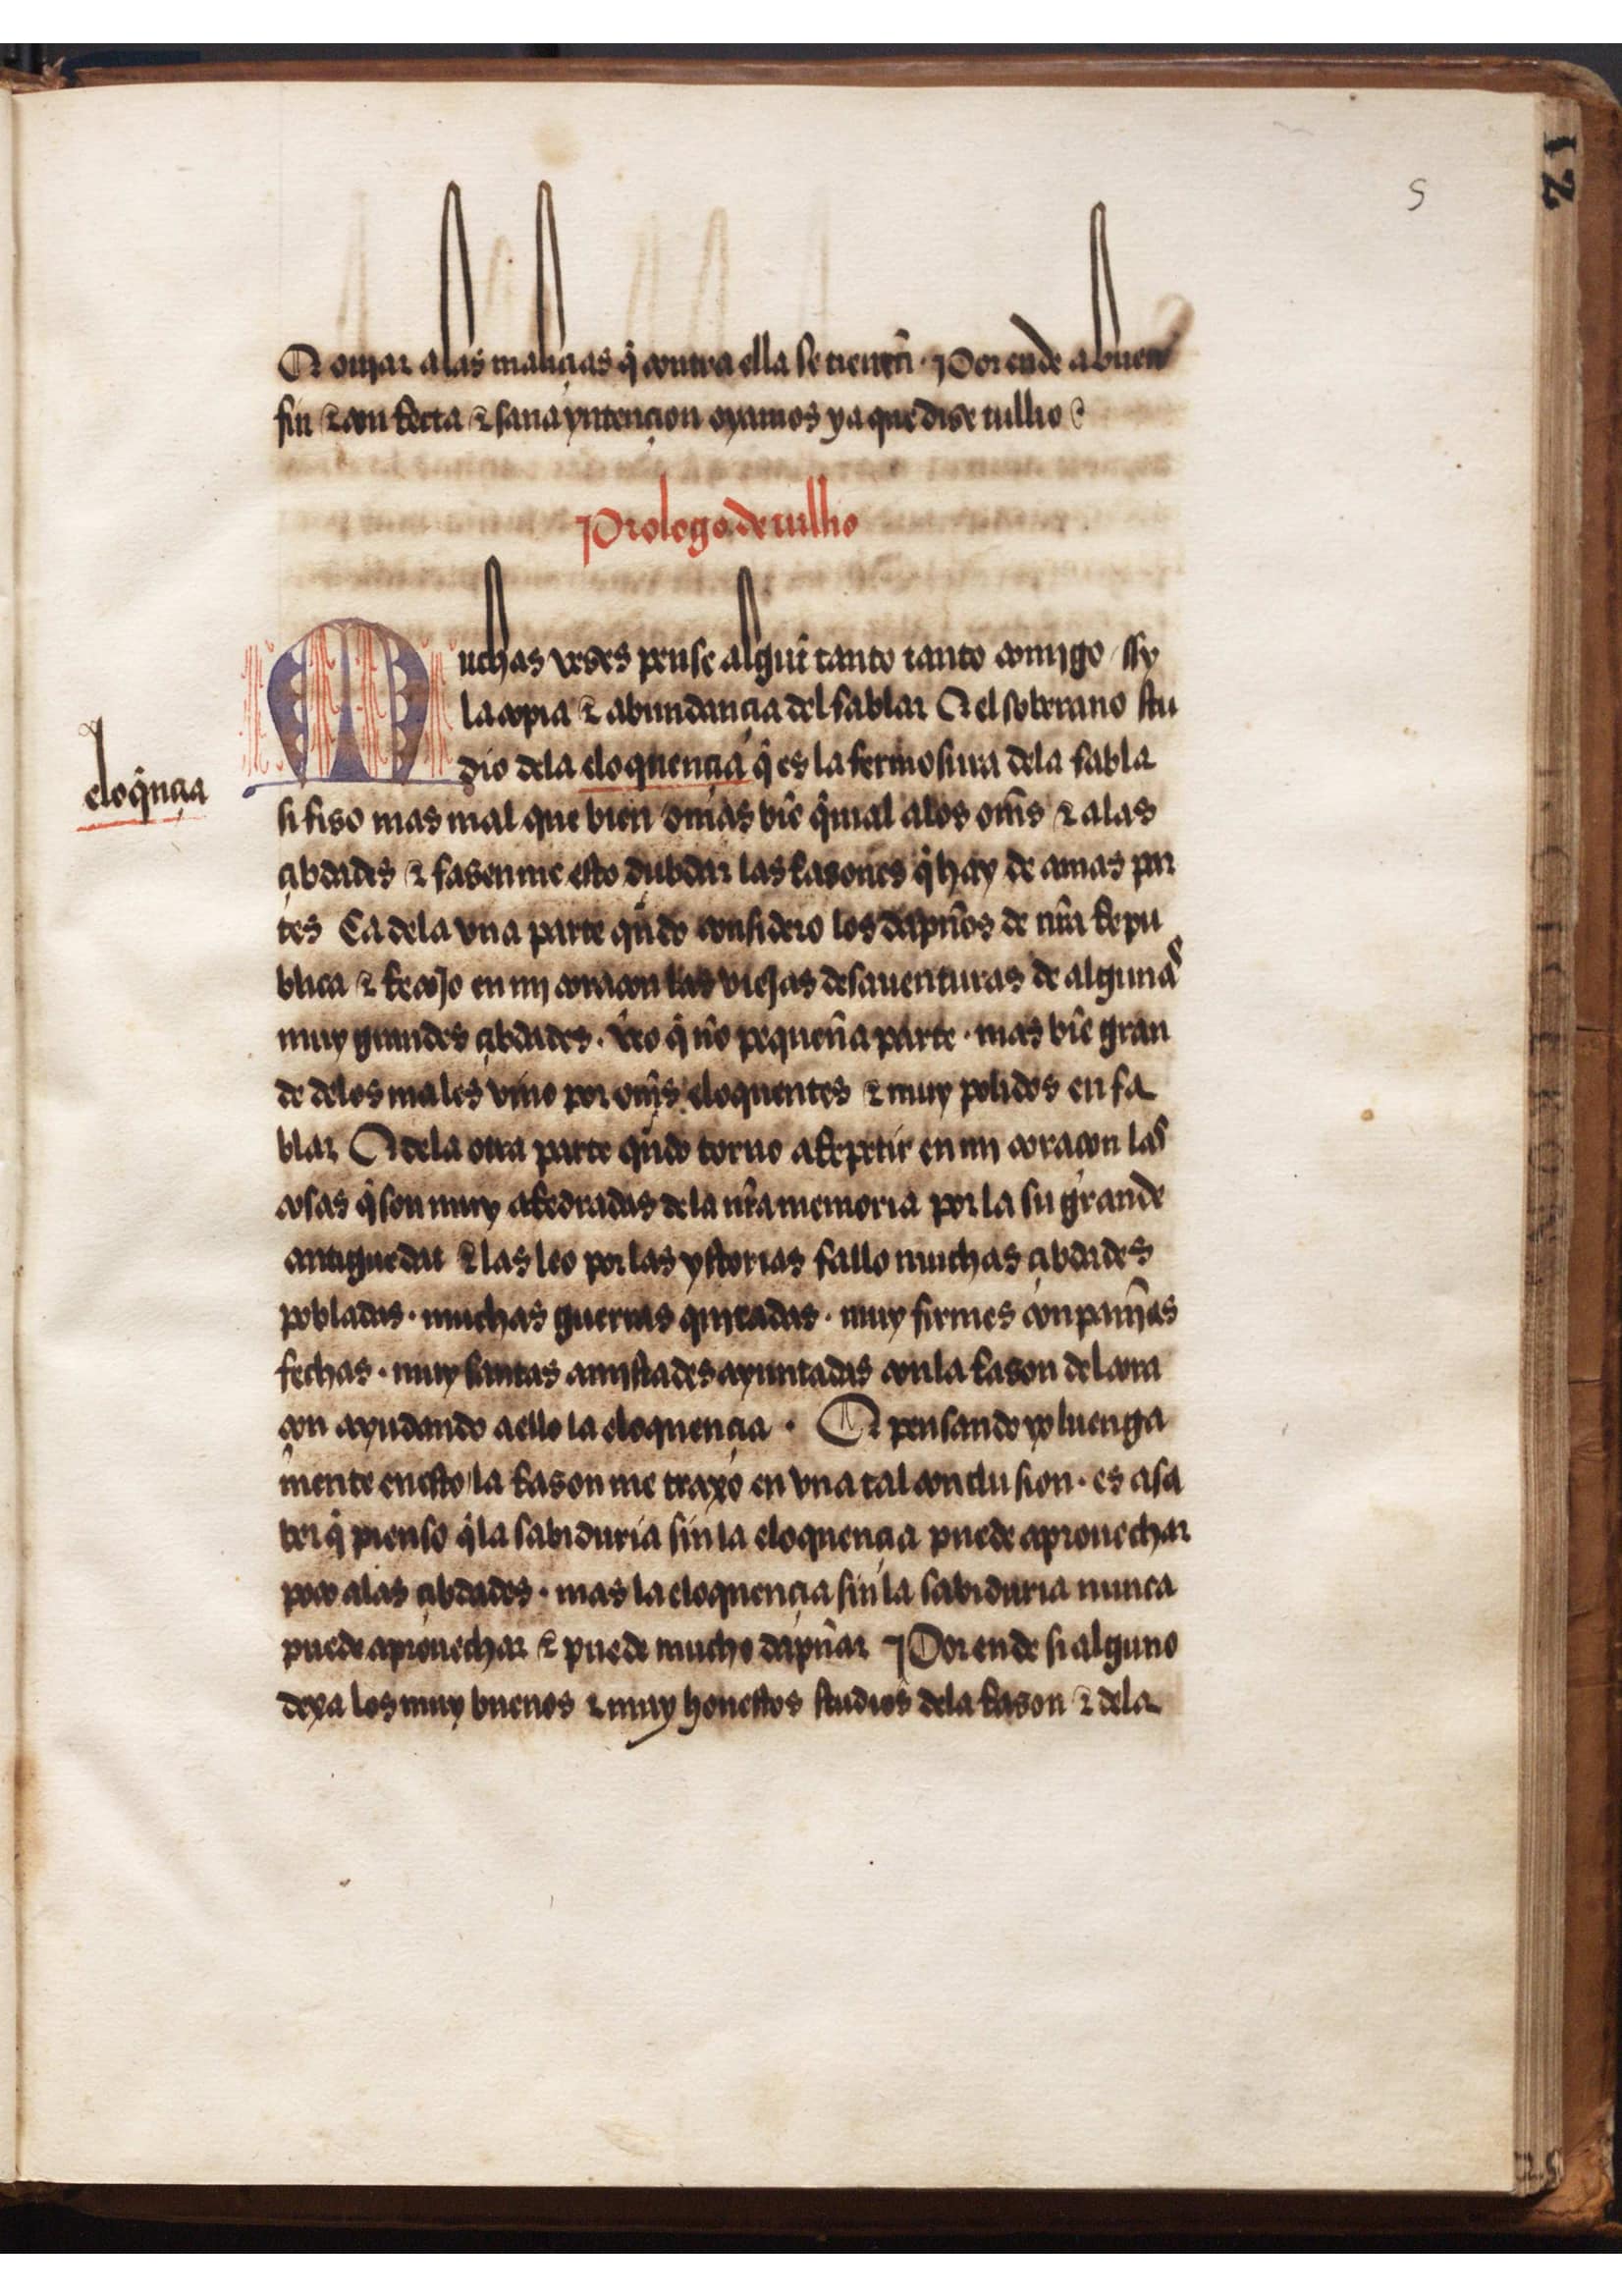 5
12
E oujar alas maliçias q̃ contra ella se tienẽ · Por ende a buen
fin & con recta & sana yntençion oyamos ya que dise tullio
Prologo de tullio
Muchas veses pense algũt tanto tanto comigo ssy
la copia & abundançia del fablar E el soberano stu
dio dela eloquençia q̃ es la fermosura dela fabla
eloq̃nçia
si fiso mas mal que bien o mas biẽ q̃ mal alos om̃s & alas
çibdades & fasenme esto dubdar las rasones q̃ hay de amas par
tes Ca dela vna parte qũdo considero los dapños de nr̃a repu
blica & recojo en mj coraçon las viejas desauenturas de algunas
muy grandes çibdades · veo q̃ nõ pequeña parte · mas biẽ gran
de delos males vino por om̃s eloquentes & muy polidos en fa
blar E dela otra parte qũdo torno a repetir en mj coraçon las
cosas q̃ son muy aredradas dela nr̃a memoria por la su grande
antiguedat & las leo por las ystorias fallo muchas çibdades
pobladas · muchas guerras qujtadas · muy firmes conpañjas
fechas · muy santas amjstades ayuntadas con la rason del cora
çon ayudando a ello la eloquençia · E pensando yo luenga
mente en esto la rason me traxo en vna tal conclusion · es a sa
ber q̃ pienso q̃ la sabiduria sin la eloquençia puede aprouechar
poco alas çibdades · mas la eloquençia sin la sabiduria nunca
puede aprouechar & puede mucho dapñar Por ende si alguno
dexa los muy buenos & muy honestos studios dela rason & dela